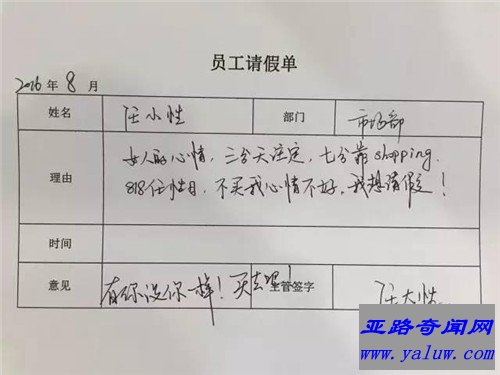 员工请假单
2016年8月
姓名 任小性 部门 市场部
理由 女人的心情,三分天注定,七分靠shopping.
818任性日,不买我心情不好,我想请假!
时间
意见 有你没你一样!买去吧! 主管签字 任大性
亚路奇闻网
www.yaluw.com